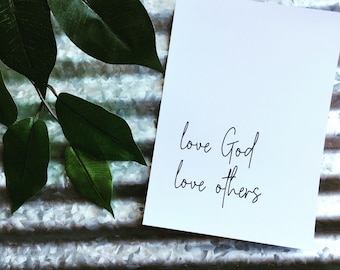 love God
love others